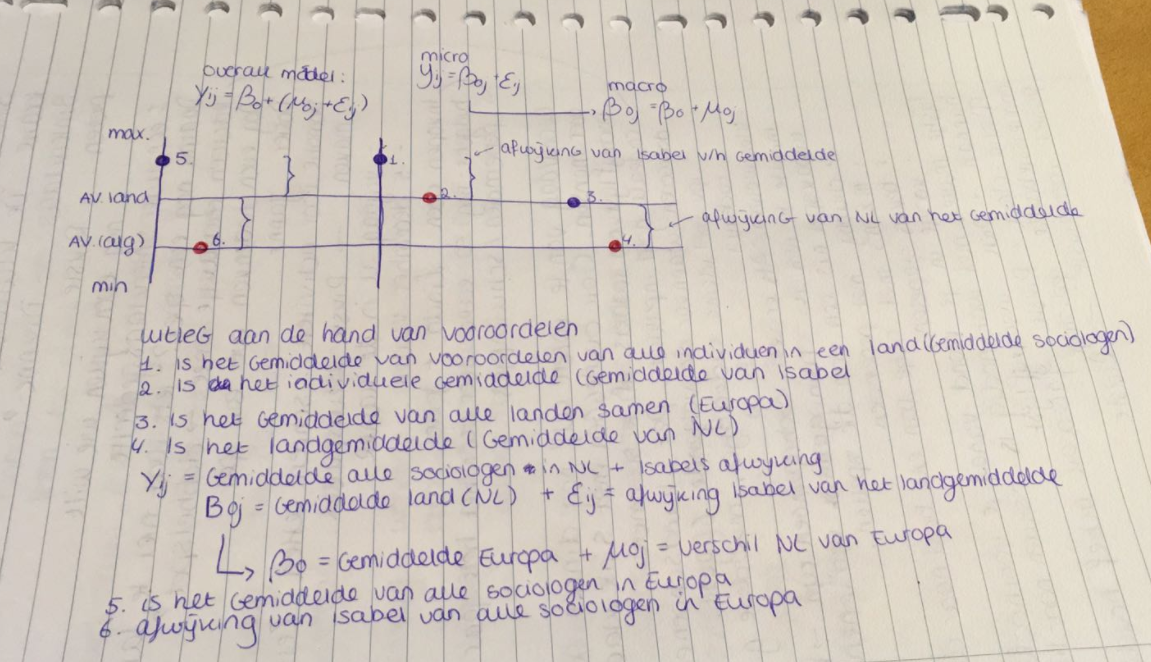 overall model:
Yij = β0 + (μ0j + εij)
micro
Yij = β0j + εij
macro
β0j = β0 + μ0j
max.
5.
1.
afwijking van Isabel v/h Gemiddelde
AV. land
2.
3.
afwijking van NL van het Gemiddelde
AV. (alg)
6.
4.
min
uitleg aan de hand van vooroordelen
1. is het Gemiddelde van vooroordelen van alle individuen in een land (Gemiddelde sociologen)
2. is het individuele Gemiddelde (Gemiddelde van Isabel
3. Is het Gemiddelde van alle landen samen (Europa)
4. Is het landgemiddelde (Gemiddelde van NL)
Yij = Gemiddelde alle sociologen in NL + Isabels afwijking
B0j = Gemiddelde land (NL) + εij = afwijking Isabel van het landgemiddelde
β0 = Gemiddelde Europa + μ0j = verschil NL van Europa
5. is het Gemiddelde van alle sociologen in Europa
6. afwijking van Isabel van alle sociologen in Europa